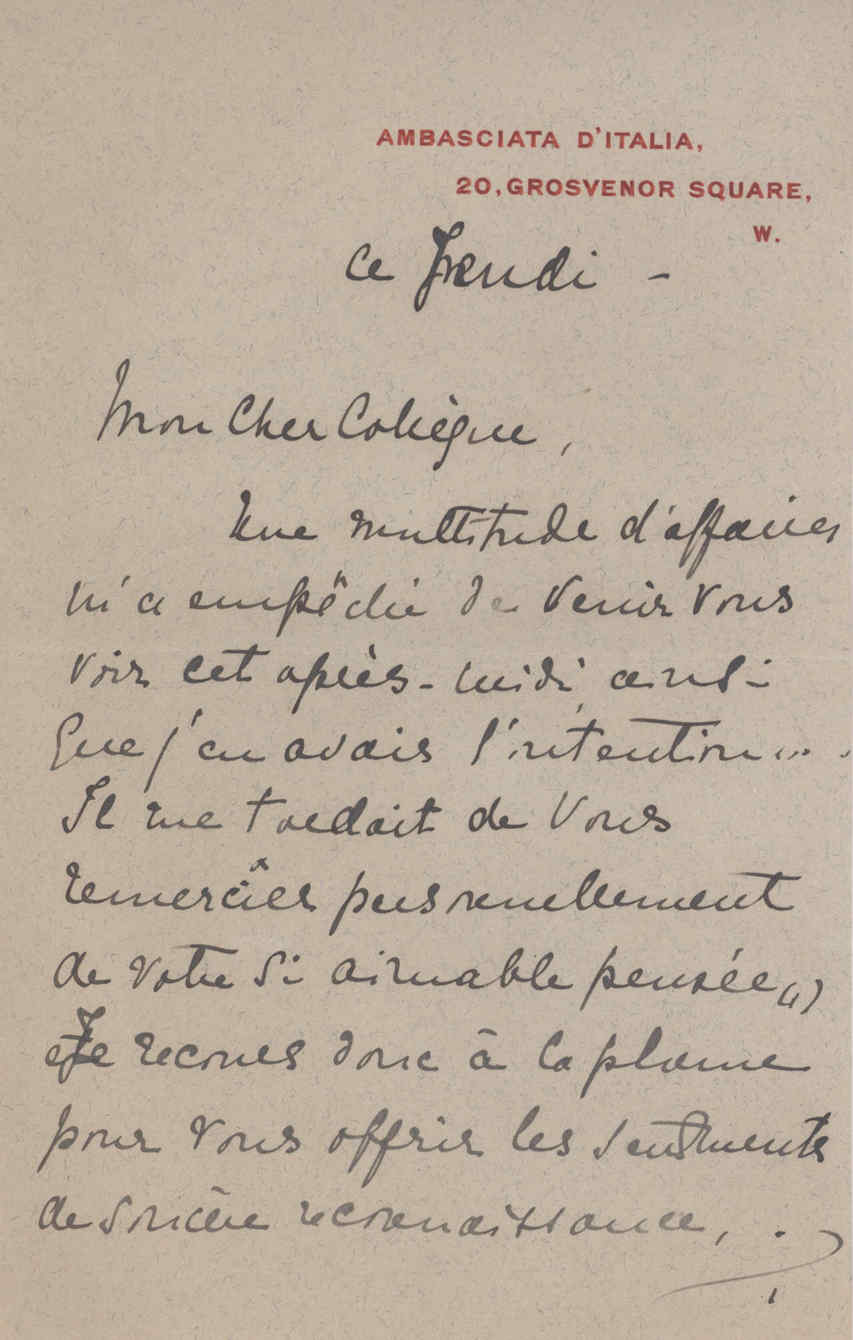 AMBASCIATA D'ITALIA,
20, GROSVENOR SQUARE,
W.
Ce Jeudi -
Mon Cher Collègue,
Une multitude d'affaires
m'a empêché de venir vous
voir cet après-midi ainsi
que j'en avais l'intention...
Il me tardait de Vous
remercier personnellement
de votre si aimable pensée
Je recours donc à la plume
pour vous offrir les sentiments
de sincère reconnaissance,